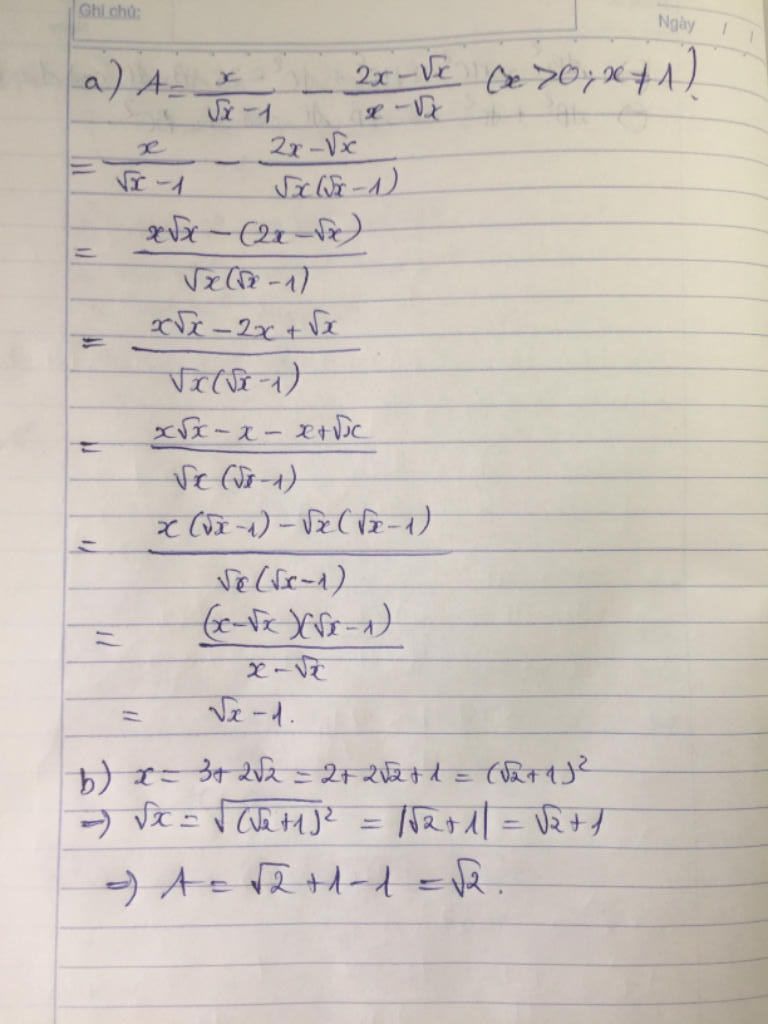 Ghi chú:
Ngày / /
a) A = x/(√x-1) - (2x-√x)/(x-√x) (x>0; x≠1).
= x/(√x-1) - (2x-√x)/(√x(√x-1))
= (x√x-(2x-√x))/(√x(√x-1))
= (x√x-2x+√x)/(√x(√x-1))
= (x√x-x-x+√x)/(√x(√x-1))
= (x(√x-1)-√x(√x-1))/(√x(√x-1))
= ((x-√x)(√x-1))/(x-√x)
= √x-1.
b) x = 3+2√2 = 2+2√2+1 = (√2+1)²
=> √x = √((√2+1)²) = |√2+1| = √2+1
=> A = √2+1-1 = √2.